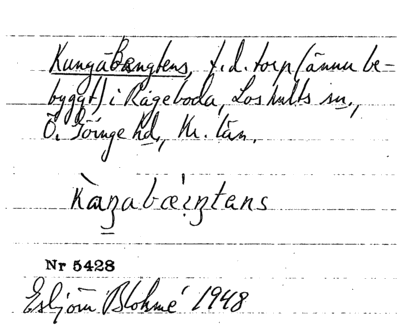 KungaBængtens, f.d. torp (ännu be-
byggt) i Rågeboda, Loshults sn.,
Ö. Göinge hd., Kr. län.
Nr 5428
Esbjörn Blohmé 1948